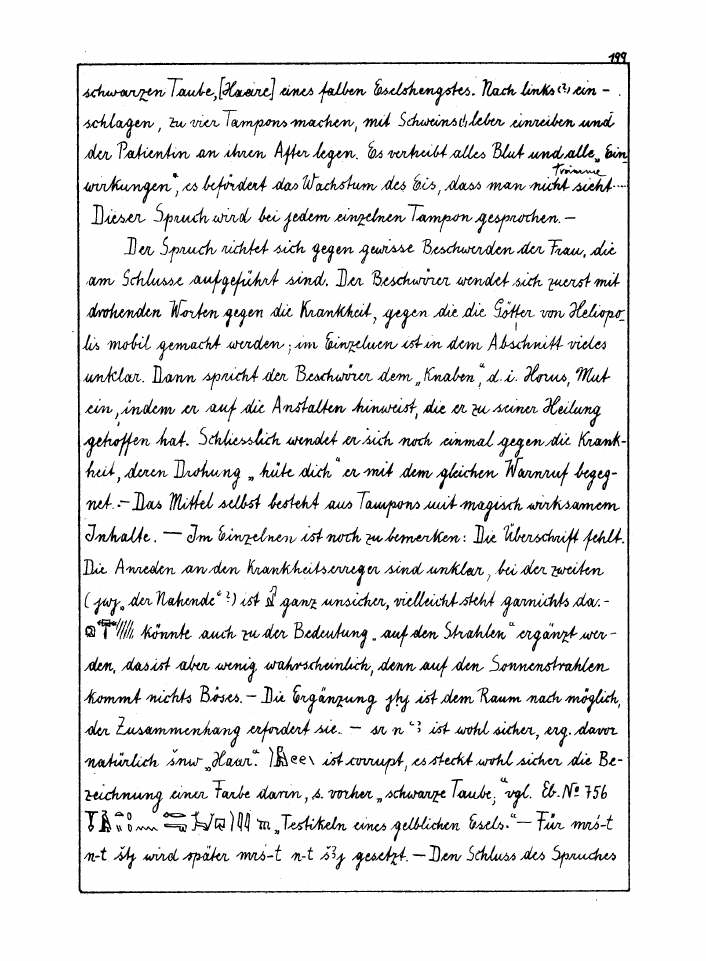 199
schwarzen Taube, [Haare] eines falben Eselshengstes. Nach links(?) ein-
schlagen, zu vier Tampons machen, mit Schweins(?)leber einreiben und
der Patientin an ihren After legen. Es vertreibt alles Blut und alle „Ein
wirkungen“, es befördert das Wachstum des Eis, dass man nicht Träume sieht....
Dieser Spruch wird bei jedem einzelnen Tampon gesprochen. —
Der Spruch richtet sich gegen gewisse Beschwerden der Frau, die
am Schlusse aufgeführt sind. Der Beschwörer wendet sich zuerst mit
drohenden Worten gegen die Krankheit, gegen die die Götter von Heliopo-
lis mobil gemacht werden; im Einzelnen ist in dem Abschnitt vieles
unklar. Dann spricht der Beschwörer dem „Knaben“, d.i. Horus, Mut
ein, indem er auf die Anstalten hinweist, die er zu seiner Heilung
getroffen hat. Schliesslich wendet er sich noch einmal gegen die Krank-
heit, deren Drohung „hüte dich“ er mit dem gleichen Warnruf begeg-
net. — Das Mittel selbst besteht aus Tampons mit magisch wirksamem
Inhalte. — Im Einzelnen ist noch zu bemerken: Die Überschrift fehlt.
Die Anreden an den Krankheitserreger sind unklar, bei der zweiten
(jwj „der Nahende“?) ist ganz unsicher, vielleicht steht garnichts da. -
könnte auch zu der Bedeutung „auf den Strahlen“ ergänzt wer-
den, das ist aber wenig wahrscheinlich, denn auf den Sonnenstrahlen
kommt nichts Böses. — Die Ergänzung ist dem Raum nach möglich,
der Zusammenhang erfordert sie. — sr n ist wohl sicher, erg. davor
natürlich šnw „Haar“. ist corrupt, es steckt wohl sicher die Be-
zeichnung einer Farbe darin, s. vorher „schwarze Taube“, vgl. Eb. No 756
„Testikeln eines gelblichen Esels.“ — Für mrś-t
n-t wird später mrś-t n-t gesetzt. — Den Schluss des Spruches